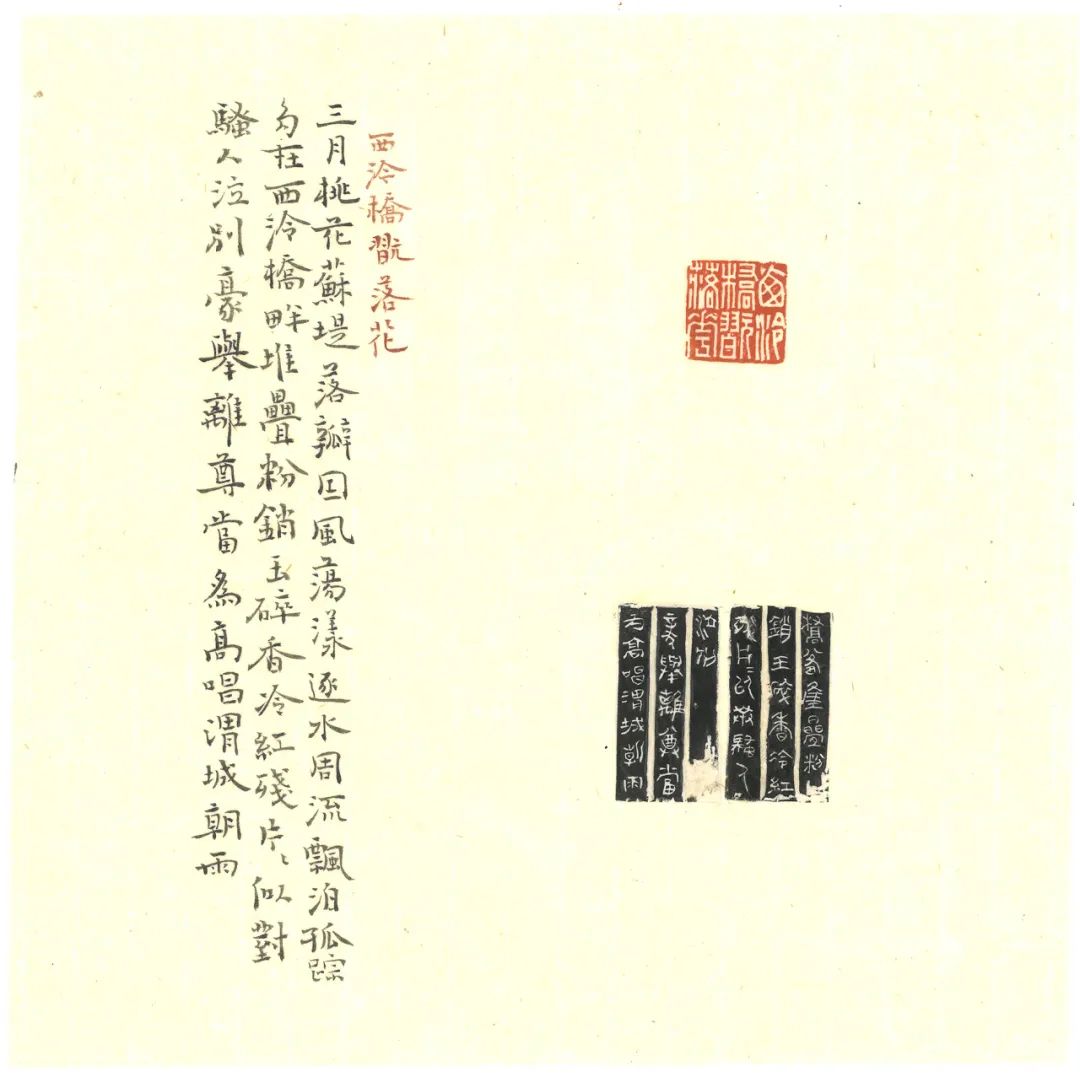 西泠
橋翫
落花
橋畔堆疊粉
銷玉碎香冷紅
殘片〻似對騷人
泣別
豪舉離尊當
為高唱渭城朝雨
西泠橋翫落花
三月桃花蘇堤落瓣囙風蕩漾逐水周流飄泊孤踪
多在西泠橋畔堆疊粉銷玉碎香冷紅殘片〻似對
騷人泣別豪舉離尊當為高唱渭城朝雨